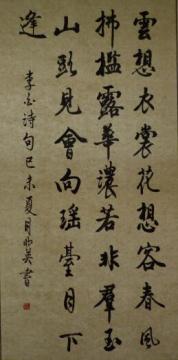 雲想衣裳花想容春風
拂檻露華濃若非羣玉
山頭見會向瑤臺月下
逢
李白诗句己未夏月